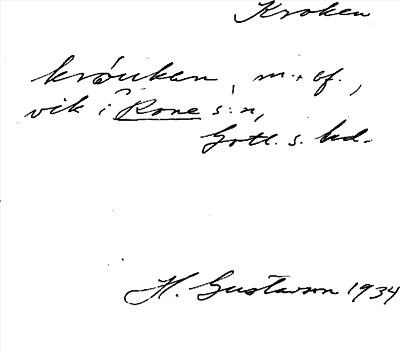 Kroken
króukan, m. + bf.,
vik i Rone s:n,
Gotl. s. hd.
H. Gustavson 1934